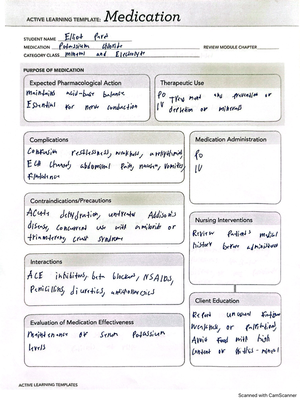 ACTIVE LEARNING TEMPLATE: Medication
STUDENT NAME Elliot
MEDICATION Potassium
REVIEW MODULE CHAPTER
CATEGORY CLASS mineral and Electrolyte
PURPOSE OF MEDICATION
Expected Pharmacological Action
Maintains acid-base balance
Essential for nerve conduction
Therapeutic Use
PO Treatment or prevention of
IV depletion or
Complications
Confusion restlessness, weakness,
ECG changes, abdominal pain, nausea, vomiting,
flatulence
Medication Administration
PO
IV
Contraindications/Precautions
Acute dehydration, untreated Addison's
disease, concurrent use with amiloride or
triamterene, crush syndrome
Nursing Interventions
Review Patient's medical
history before
Interactions
ACE inhibitors, beta blockers, NSAIDs,
Penicillins, diuretics,
Client Education
Report unusual
weakness, or
Avoid food with high
content or
Evaluation of Medication Effectiveness
maintenance or serum potassium
levels
ACTIVE LEARNING TEMPLATES
Scanned with CamScanner